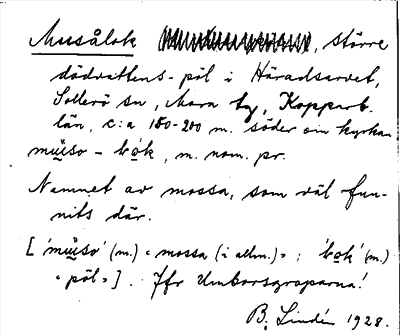 Musålok, större
dödvattens-pöl i Häradsarvet,
Sollerö sn, Mora tg, Kopparb.
län, c:a 150-200 m. söder om kyrkan
m. nom. pr.
Namnet av mossa, som väl fun-
nits där.
(m.) « mossa (i allm.) » ; (m.)
« pöl » ] . Jfr Umborsgroparna!
B. Lindén 1928.